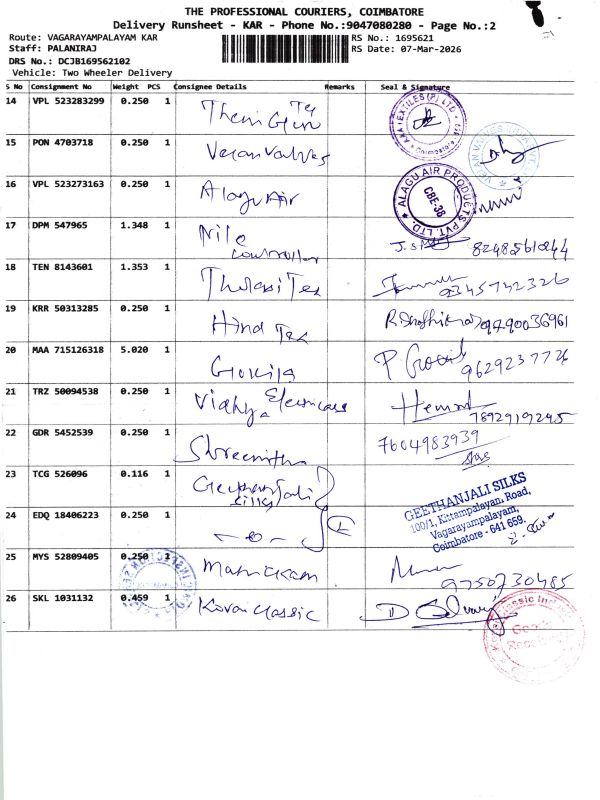 THE PROFESSIONAL COURIERS, COIMBATORE
Delivery Runsheet - KAR - Phone No.:9047080280 - Page No.:2
Route: VAGARAYAMPALAYAM KAR
RS No.: 1695621
Staff: PALANIRAJ
RS Date: 07-Mar-2026
DRS No.: DCJB169562102
Vehicle: Two Wheeler Delivery
S No Consignment No Weight PCS Consignee Details Remarks Seal & Signature
14 VPL 523283299 0.250 1
15 PON 4703718 0.250 1 Veran Valves
16 VPL 523273163 0.250 1 Alagu Air
ALAGU AIR PRODUCTS PVT. LTD.
CBE-38
17 DPM 547965 1.348 1 Nile
Controller
18 TEN 8143601 1.353 1 Thulasi Tex 9345742326
19 KRR 50313285 0.250 1 Hind Tex
20 MAA 715126318 5.020 1 Gokila 9629237726
21 TRZ 50094538 0.250 1 Vidhya Electricals
Hemant
7892919245
22 GDR 5452539 0.250 1 Shreenitha 7604983939
23 TCG 526096 0.116 1 Geethanjali
Silks
GEETHANJALI SILKS
100/1, Kittampalayan, Road,
Vagarayampalayam,
Coimbatore - 641 659.
24 EDQ 18406223 0.250 1 -o-
25 MYS 52809405 0.250 1 Manickam 9750730485
26 SKL 1031132 0.459 1 Kovai Classic
Goods
Received